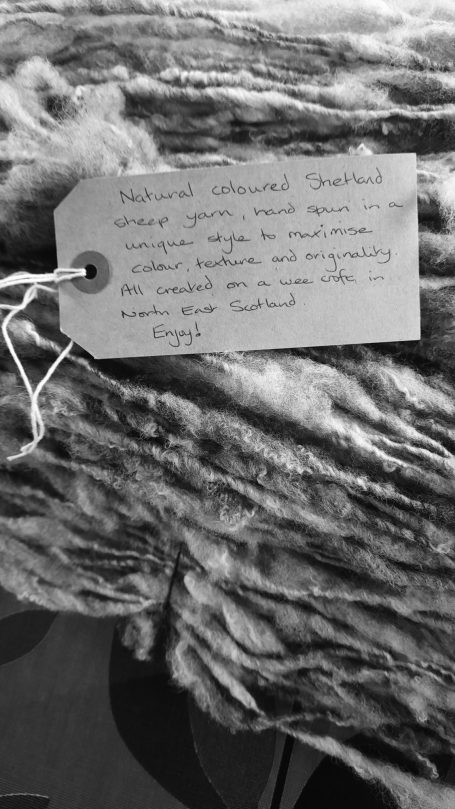 Natural coloured Shetland
sheep yarn, hand spun in a
unique style to maximise
colour, texture and originality.
All created on a wee croft in
North East Scotland.
Enjoy!